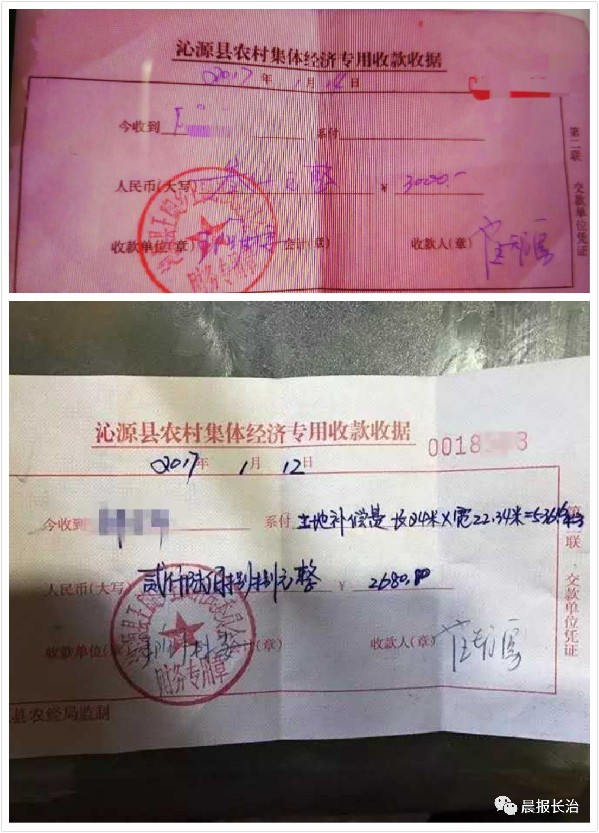 沁源县农村集体经济专用收款收据
2017年 1月 14日
今收到 系付
人民币(大写) 叁仟元整 ¥ 3000.-
收款单位(章) 会计(章) 收款人(章)
第二联 交款单位凭证
财务专用章
沁源县农村集体经济专用收款收据 0018 3
2017年 1月 12日
今收到 系付 土地补偿费 长24米×宽22.34米=536.
人民币(大写) 贰仟陆佰捌拾捌元整 ¥ 2680.80
收款单位(章) 会计(章) 收款人(章)
第二联 交款单位凭证
财务专用章
县农经局监制
晨报长治